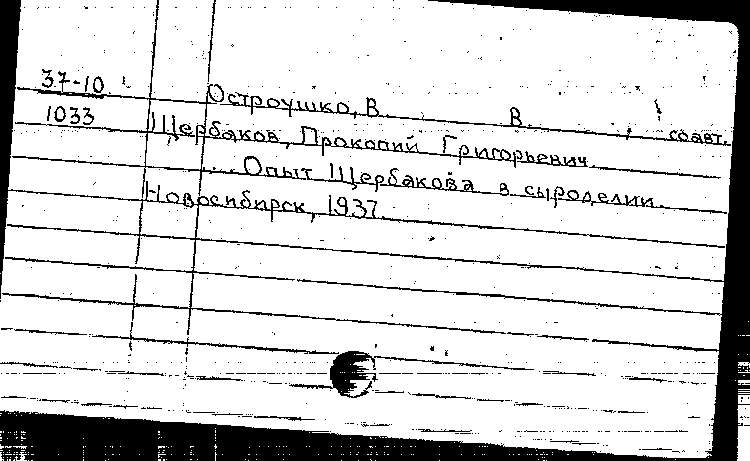 37-10
1033
Остроушко, В. В. , соавт.
Щербаков, Прокопий Григорьевич.
... Опыт Щербакова в сыроделии.
Новосибирск, 1937.